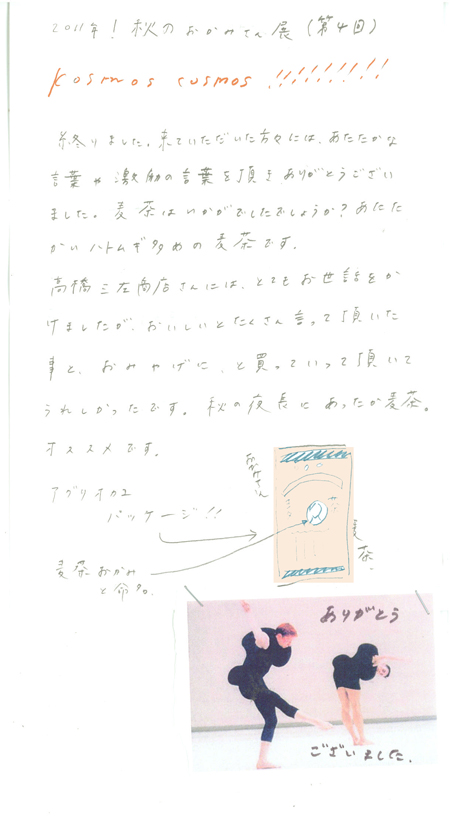 2011年！秋のおかみさん展（第4回）
KOSMOS COSMOS !!!!!!!!!
終りました。来ていただいた方々には、あたたかな
言葉や激励の言葉を頂きありがとうござい
ました。麦茶はいかがでしたでしょうか？あたた
かいハトムギ多めの麦茶です。
高橋三左商店さんには、とてもお世話をか
けましたが、おいしいとたくさん言って頂いた
事と、おみやげに、と買っていって頂いて
うれしかったです。秋の夜長にあったか麦茶。
オススメです。
おかみさん
麦茶
パッケージ!!
麦茶おかみ
と命名。
ありがとう
ございました。